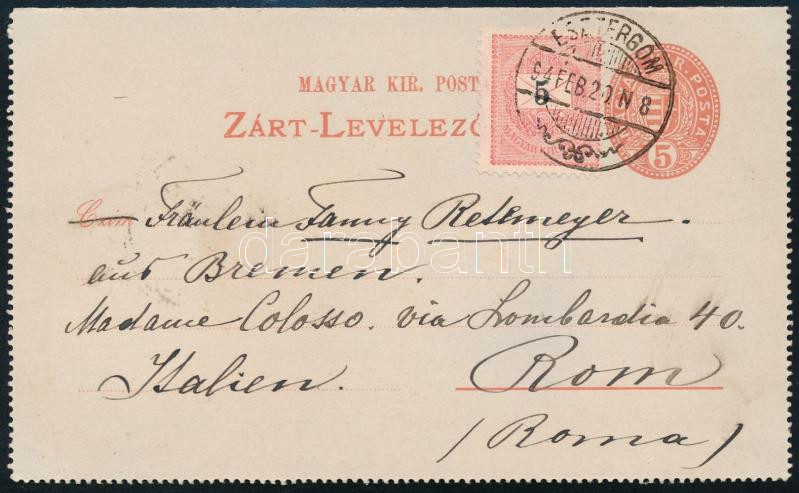 MAGYAR KIR. POST
ZÁRT-LEVELEZŐ
5
MAGYAR KIR
ESZTERGOM
94 FEB. 20. N 8
KIR. POSTA
5
Czim Fräulein Fanny Retemeyer.
aus Bremen.
Madame Colosso. via Lombardia 40.
Italien. Rom
(Roma)
darabanth